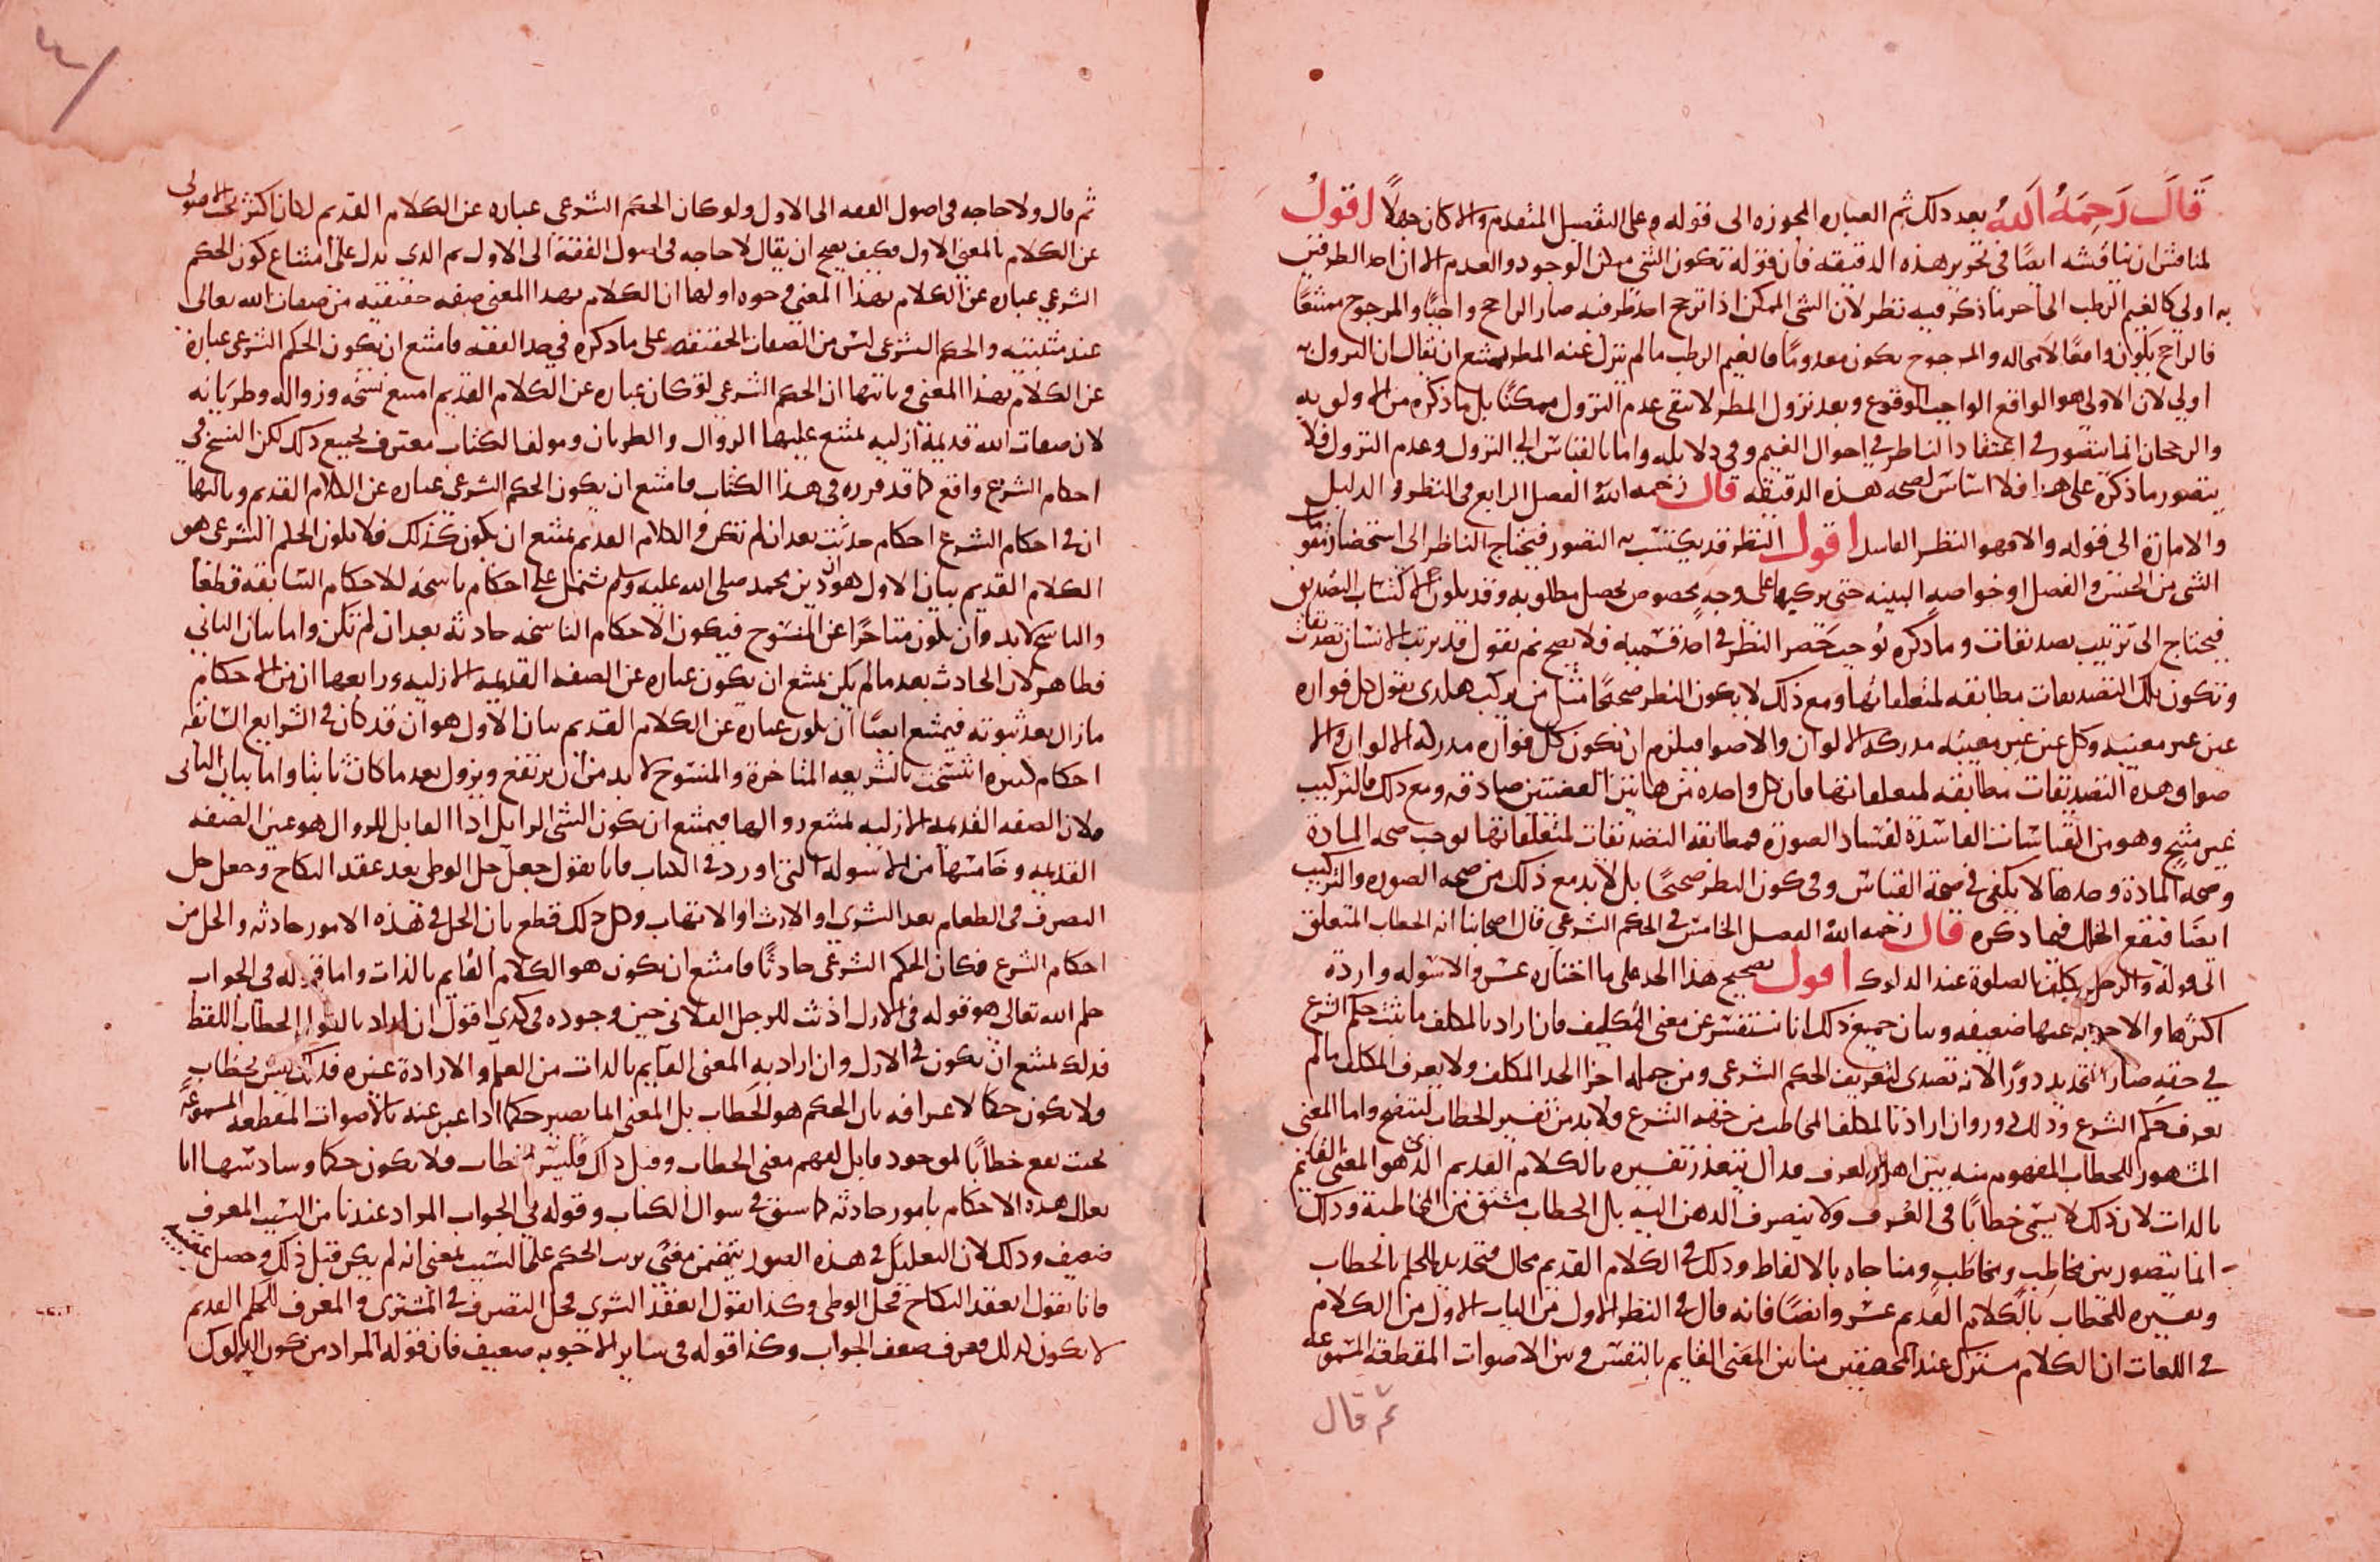 قال رحمه الله بعد ذلك ثم العباره المجوزه الى قوله وعلى التفصيل المتقدم والا كان جهلا اقول
لمناقش ان يناقشه ايضا في تحرير هذه الدقيقه فان قوله تكون الشي ممكن الوجود والعدم الا ان احد الطرفين
به اولى كالغيم الرطب الى آخر ما ذكر فيه نظر لان الشي الممكن اذا ترجح احد طرفيه صار الراجح واجبا والمرجوح ممتنعا
فالراجح يكون واقعا لا محاله والمرجوح يكون معدوما فالغيم الرطب ما لم ينزل عنه المطر يمتنع ان يقال ان النزول به
اولى لان الاولى هو الواقع الواجب الوقوع وبعد نزول المطر لا يبقى عدم النزول ممكنا بل ما ذكره من الاولويه
والرجحان انما يتصور في اعتقاد الناظر في احوال الغيم وفي دلايله واما بالقياس الى النزول وعدم النزول فلا
يتصور ما ذكره على هذا فلا اساس لصحه هذه الدقيقه قال رحمه الله الفصل الرابع في النظر والدليل
والامارة الى قوله والا فهو النظر الفاسد اقول النظر قد يكتسب به التصور فيحتاج الناظر الى استحضار مقومات
الشي من الجنس والفصل او خواصه البينه حتى يركبها على وجه مخصوص يحصل مطلوبه وقد يكون لاكتساب التصديق
فيحتاج الى ترتيب تصديقات وما ذكره يوجب حصر النظر في احد قسميه فلا يصح ثم نقول قد يرتب الانسان تصديقات
وتكون تلك التصديقات مطابقه لمتعلقاتها ومع ذلك لا يكون النظر صحيحا مثل من يركب هكذى نقول كل فواره
عين غير معينه وكل عين غير معينه مدركه الالوان والاضوا فيلزم ان يكون كل فواره مدركه الالوان والا
ضوا وهذه التصديقات مطابقه لمتعلقاتها فان كل واحده من هاتين القضيتين صادقه ومع ذلك فالتركيب
غير منتج وهو من القياسات الفاسدة لفساد الصورة فمطابقه التصديقات لمتعلقاتها توجب صحه المادة
وصحه المادة وحدها لا يكفي في صحة القياس وفي كون النظر صحيحا بل لا بد مع ذلك من صحه الصوره والتركيب
ايضا فيقع الخلل فيما ذكره قال رحمه الله الفصل الخامس في الحكم الشرعي قال اصحابنا انه الخطاب المتعلق
الى قوله والرجل يكلف بالصلوة عند الدلوك اقول تصحيح هذا الحد على ما اختاره عسر والاسوله واردة
اكثرها والاجوبه عنها ضعيفه وبيان جميع ذلك انا نستفسر عن معنى المكلف فان اراد بالمكلف ما يثبت حكم الشرع
في حقه صار التحديد دورا لانه تصدى لتعريف الحكم الشرعي ومن جمله اجزا الحد المكلف ولا يعرف المكلف ما لم
يعرف حكم الشرع وذلك دور وان اراد بالمكلف المخاطب من جهه الشرع فلا بد من تفسير الخطاب ليتضح واما المعنى
المشهور للخطاب المفهوم منه بين اهل العرف فذاك يتعذر تفسيره بالكلام القديم الذي هو المعنى القايم
بالذات لان ذلك لا يسمى خطابا في العرف ولا ينصرف الذهن اليه بل الخطاب مشتق من المخاطبة وذلك
انما يتصور بين مخاطب ومخاطب ومناجاه بالالفاظ وذلك في الكلام القديم محال فتحديد الحكم بالخطاب
وتفسيره للخطاب بالكلام القديم عسر وايضا فانه قال في النظر الاول من الباب الاول من الكلام
في اللغات ان الكلام مشترك عند المحققين منا بين المعنى القايم بالنفس وبين الاصوات المقطعة المسموعه
ثم قال
ثم قال ولا حاجه في اصول الفقه الى الاول ولو كان الحكم الشرعي عباره عن الكلام القديم لكان اكثر بحث الاصولي
عن الكلام بالمعنى الاول فكيف يصح ان يقال لا حاجه في اصول الفقه الى الاول ثم الذي يدل على امتناع كون الحكم
الشرعي عباره عن الكلام بهذا المعنى وجوه اولها ان الكلام بهذا المعنى صفه حقيقيه من صفات الله تعالى
عند مثبتيه والحكم الشرعي ليس من الصفات الحقيقيه على ما ذكره في حد الفقه فامتنع ان يكون الحكم الشرعي عبارة
عن الكلام بهذا المعنى وثانيها ان الحكم الشرعي لو كان عباره عن الكلام القديم امتنع نسخه وزواله وطريانه
لان صفات الله قديمة ازليه يمتنع عليها الزوال والطريان ومولف الكتاب معترف بجميع ذلك لكن النسخ في
احكام الشرع واقع كما قد قرره في هذا الكتاب فامتنع ان يكون الحكم الشرعي عباره عن الكلام القديم وثالثها
ان في احكام الشرع احكام حدثت بعد ان لم تكن والكلام القديم يمتنع ان يكون كذلك فلا يكون الحكم الشرعي هو
الكلام القديم بيان الاول هو ان دين محمد صلى الله عليه وسلم يشتمل على احكام ناسخه للاحكام السابقه قطعا
والناسخ لا بد وان يكون متاخرا عن المنسوخ فيكون الاحكام الناسخه حادثه بعد ان لم تكن واما بيان الثاني
فظاهر لان الحادث بعد ما لم يكن يمتنع ان يكون عباره عن الصفه القديمه الازليه ورابعها ان من الاحكام
ما زال بعد ثبوته فيمتنع ايضا ان يكون عبارة عن الكلام القديم بيان الاول هو ان قد كان في الشرايع السابقه
احكام كثيره انتسخت بالشريعه المتاخرة والمنسوخ لا بد من ان يرتفع ويزول بعد ما كان ثابتا واما بيان الثاني
فلان الصفه القديمه الازليه يمتنع زوالها فيمتنع ان يكون الشي الزايل اذا القابل للزوال هو عين الصفه
القديمه وخامسها من الاسوله التي اورد في الكتاب فانا نقول جعل حل الوطى بعد عقد النكاح وجعل حل
التصرف في الطعام بعد الشرى او الارث او الاتهاب وكل ذلك قطع بان الحل في هذه الامور حادثه والحل من
احكام الشرع فكان الحكم الشرعي حادثا فامتنع ان يكون هو الكلام القايم بالذات واما قوله في الجواب
حكم الله تعالى هو قوله في الازل اذنت للرجل الفلاني حين وجوده في كذى اقول ان اراد بالقول الخطاب اللفظ
فذلك يمتنع ان يكون في الازل وان اراد به المعنى القايم بالذات من العلم او الارادة غيره فذلك ليس بخطاب
ولا يكون حكما لاعترافه بان الحكم هو الخطاب بل المعنى انما يصير حكما اذا عبر عنه بالاصوات المقطعه المسموعة
بحيث يقع خطابا لموجود قابل لفهم معنى الخطاب وقبل ذلك فليس بخطاب فلا يكون حكما وسادسها انا
نعلل هذه الاحكام بامور حادثه كما سبق في سوال الكتاب وقوله في الجواب المراد عندنا من السبب المعرف
ضعيف وذلك لان التعليل في هذه الصور يتضمن معنى ترتب الحكم على السبب بمعنى انه لم يكن قبل ذلك وحصل عقيبه
فانا نقول انعقد النكاح فحل الوطى وكذا نقول انعقد الشرى فحل التصرف في المشترى والمعرف للحكم القديم
لا يكون كذلك فعرف ضعف الجواب وكذا قوله في ساير الاجوبه ضعيف فان قوله المراد من كون الدلوك